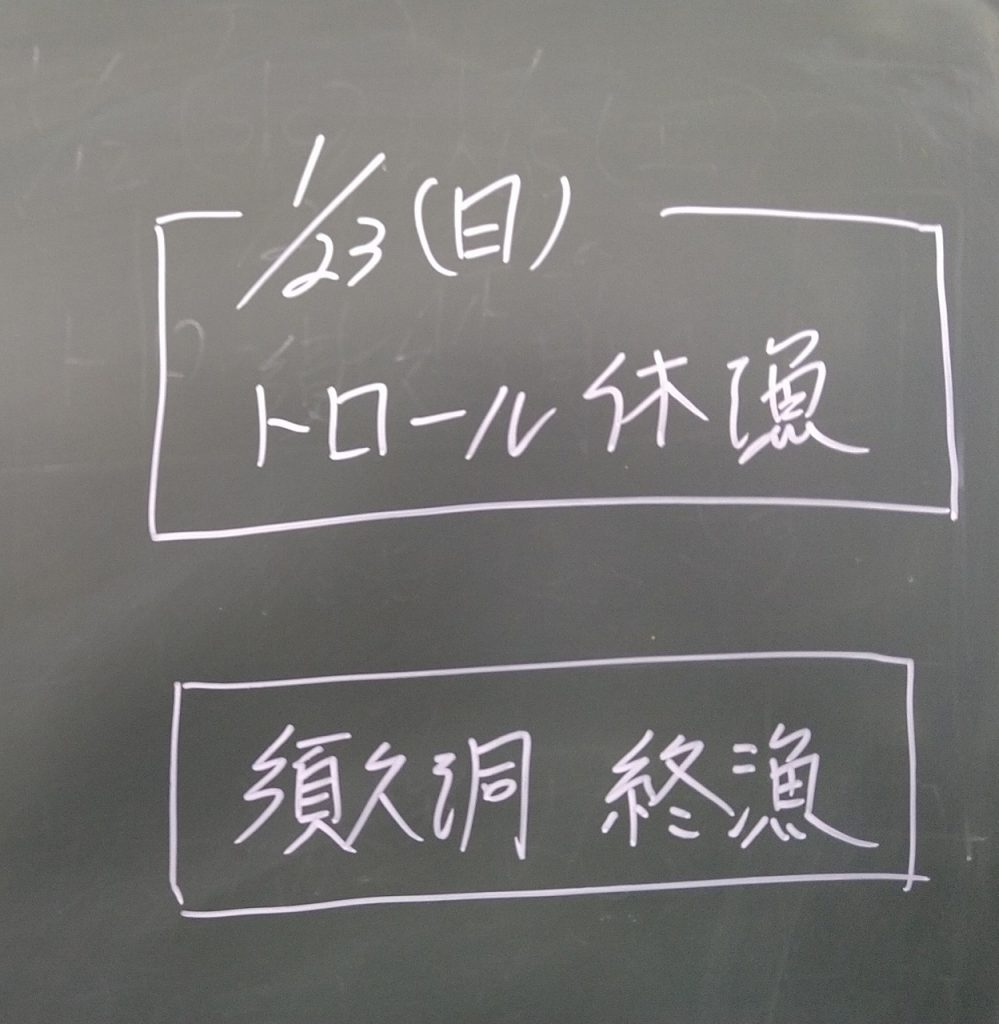 1/23(日)
トロール休漁
須久洞 終漁